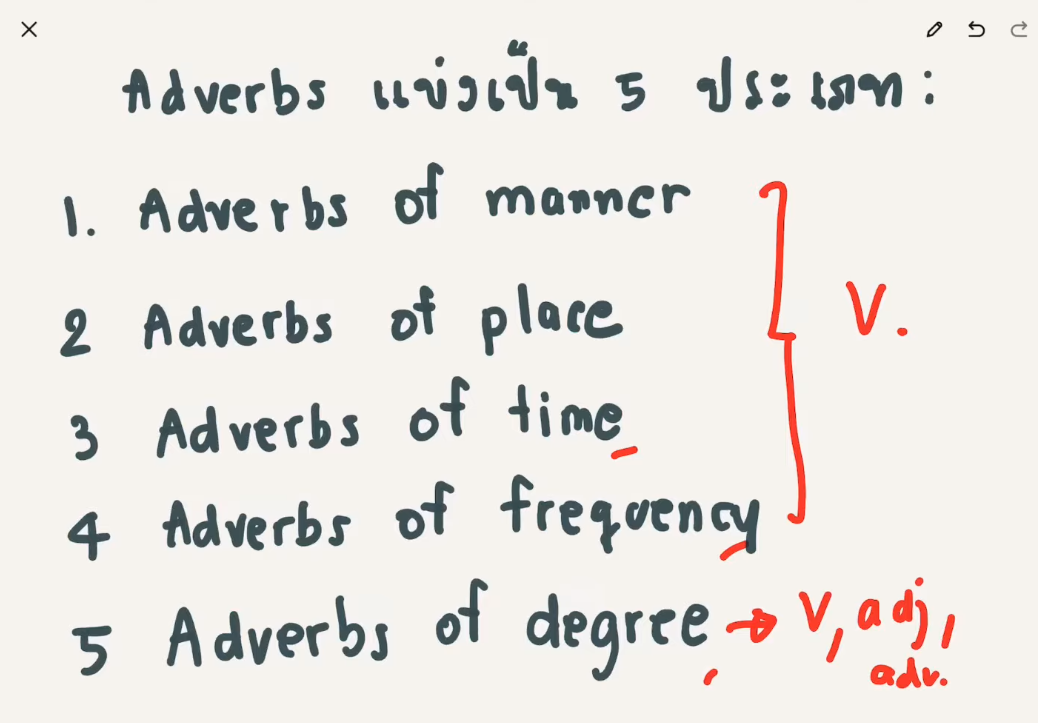 Adverbs แบ่งเป็น 5 ประเภท :
1. Adverbs of manner
2 Adverbs of place
3 Adverbs of time
4 Adverbs of frequency
V.
5 Adverbs of degree → V, adj,
adv.